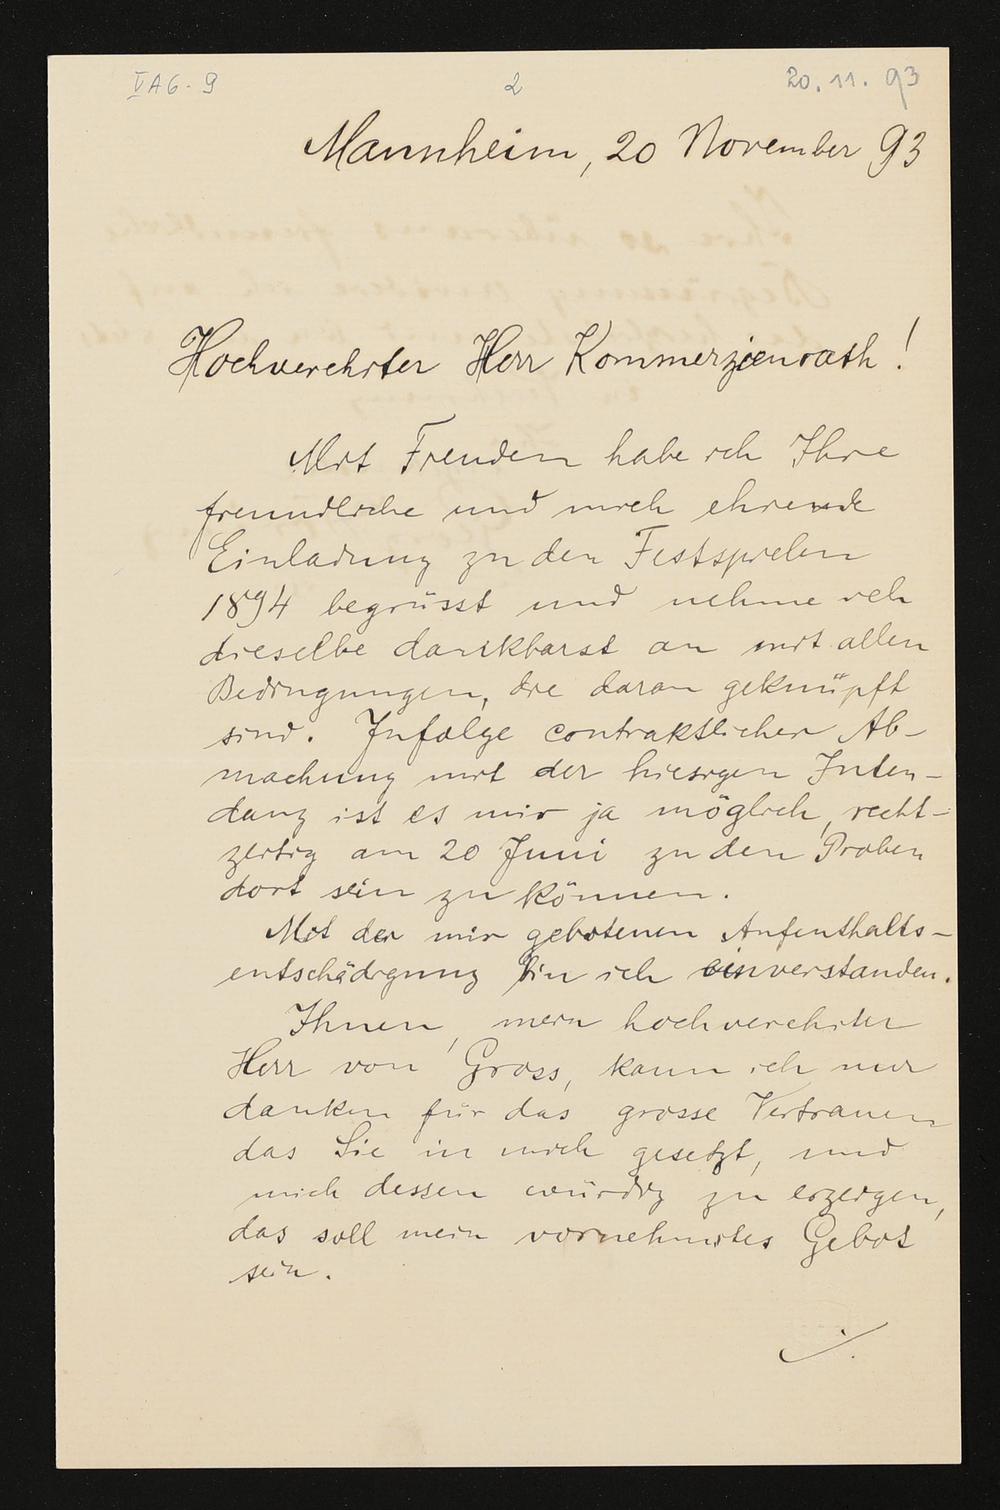 V A 6 - 9
2
20. 11. 93
Mannheim, 20 November 93
Hochverehrter Herr Kommerzienrath!
Mit Freuden habe ich Ihre
freundliche und mich ehrende
Einladung zu den Festspielen
1894 begrüsst und nehme ich
dieselbe dankbarst an mit allen
Bedingungen, die daran geknüpft
sind. Infolge contraktlicher Ab-
machung mit der hiesigen Inten-
danz ist es mir ja möglich, recht-
zeitig am 20 Juni zu den Proben
dort sein zu können.
Mit der mir gebotenen Aufenthalts-
entschädigung bin ich einverstanden.
Ihnen, mein hochverehrter
Herr von Gross, kann ich nur
danken für das grosse Vertrauen
das Sie in mich gesetzt, und
mich dessen würdig zu erzeigen,
das soll mein vornehmstes Gebot
sein.